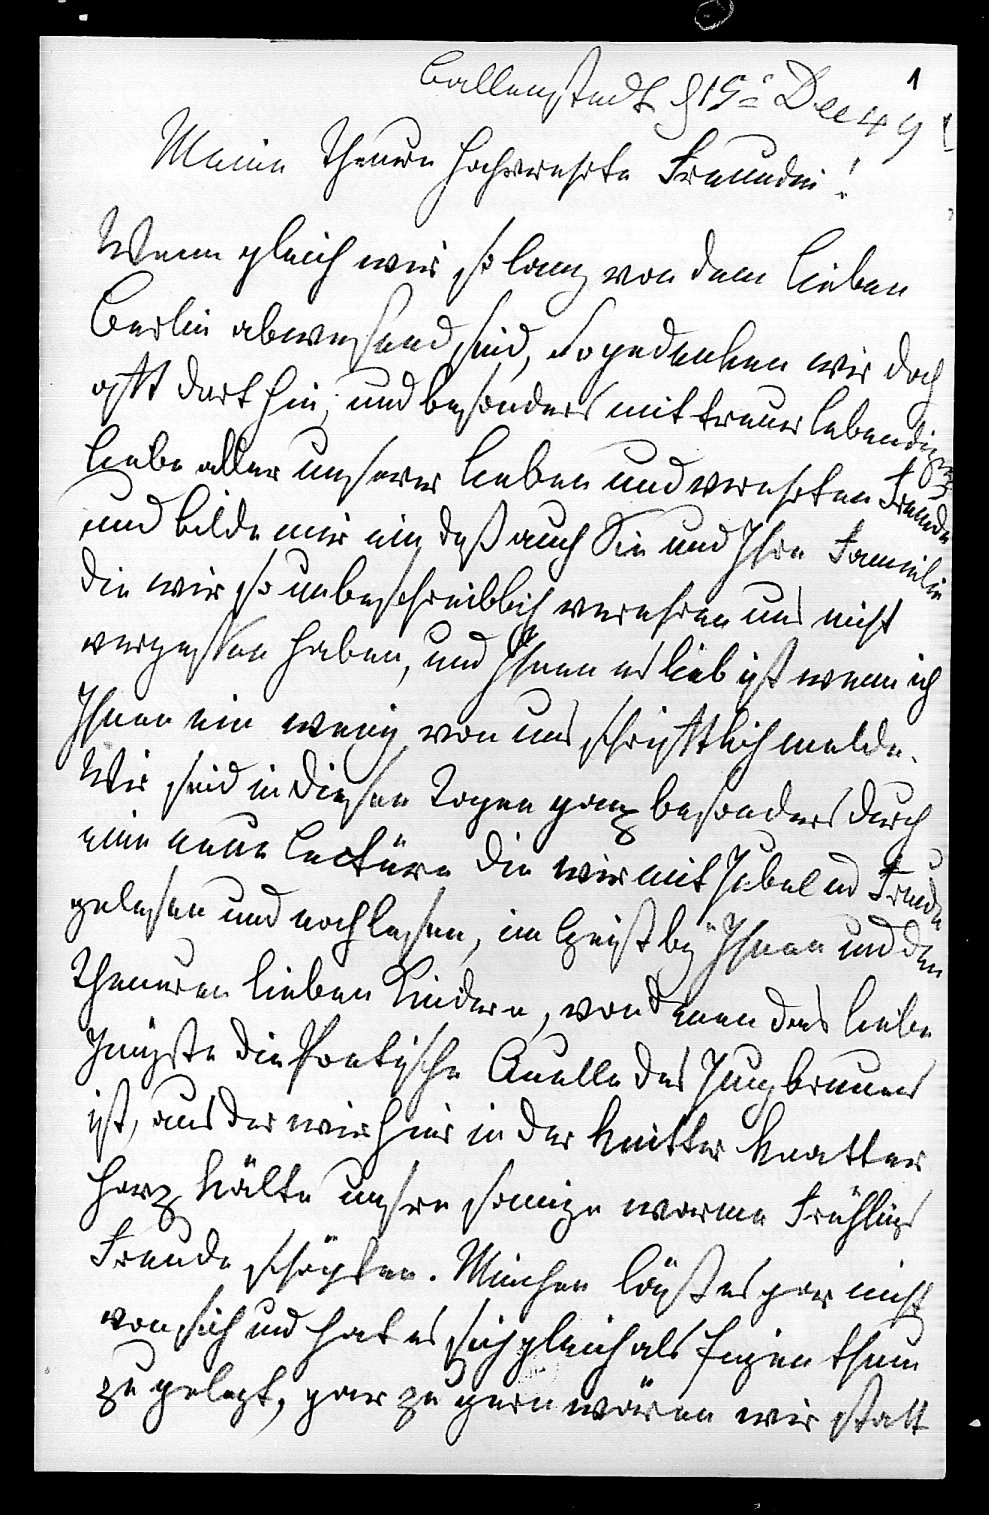 1
Ballenstedt d 19ᵗ Dec 49
Meine Theure hochverehrte Freundin!
Wenn gleich wir so lang von dem lieben
Berlin abwesend sind, so gedenken wir doch
oft dort hin, und besonders mit treuer lebendiger
Liebe aller unserer lieben und verehrten Freunde
und bilde mir ein daß auch Sie und Ihre Familie
die wir so unbeschreiblich verehren uns nicht
vergessen haben, und Ihnen es lieb ist wenn ich
Ihnen ein wenig von uns schriftlich melde.
Wir sind in diesen Tagen ganz besonders durch
eine neue Lectüre die wir mit Jubel und Freude
gelesen und noch lesen, im Geist bei Ihnen und den
Theuren lieben Kindern, von denen das liebe
Jüngste die Poetische Quelle des Jungbrunnens
ist, aus der wir hier in der Knitter Knatter
Harz Kälte unsre sonnige warme Frühlings
Freude schöpfen. Minchen läßt es gar nicht
von sich und hat es sich gleich als Eigenthum
zu gelegt, gar zu gern wären wir statt